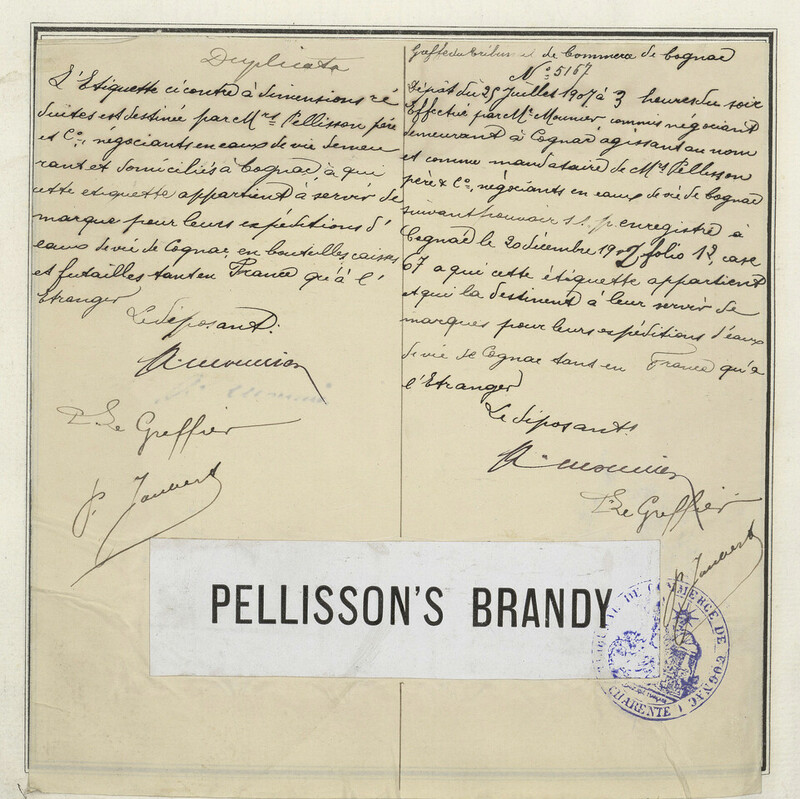 Duplicata
L'Etiquette ci contre à dimensions ré
duites est destinée par Mrs Pellisson père
et Co, négociants en eaux de vie demeu
rant et domiciliés à Cognac, à qui
cette etiquette appartient à servir de
marque pour leurs expéditions d'
eaux de vie de Cognac, en bouteilles, caisses
et futailles tant en France qu'à l'
Etranger
Le déposant:
A. Mounier
Le Greffier
J. Jaubert
Greffe du Tribunal de Commerce de Cognac
No 5167
Dépôt du 25 Juillet 1907 à 3 heures du soir
Effectué par Mr Mounier commis négociant
demeurant à Cognac agissant au nom
et comme mandataire de Mrs Pellisson
père & Co, négociants en eaux de vie de Cognac
suivant pouvoir s.s.p. enregistré à
Cognac le 20 décembre folio 12, case
67 a qui cette étiquette appartient
et qui la destinent à leur servir de
marques pour leurs expéditions d'eaux
de vie de Cognac tant en France qu'a
l'Etranger
Le déposant
A. Mounier
Le Greffier
Jaubert
PELLISSON'S BRANDY
TRIBUNAL DE COMMERCE DE COGNAC
CHARENTE